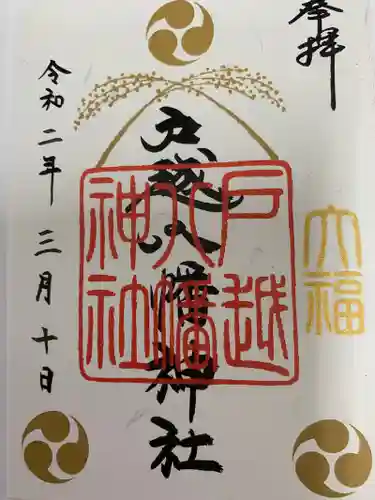 奉拝
大福
戸越八幡神社
戸越
八幡
神社
令和二年 三月十日